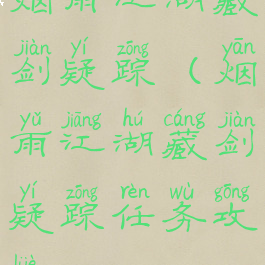 烟雨江湖藏
jiàn yí zōng yān
剑疑踪(烟
yǔ jiāng hú cáng jiàn
雨江湖藏剑
yí zōng rèn wù gōng
疑踪任务攻
lüè